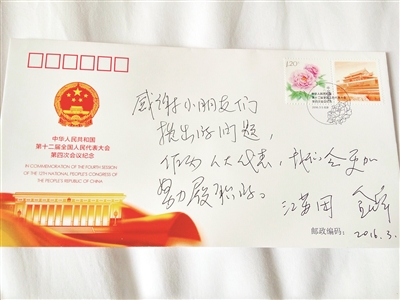 中华人民共和国
第十二届全国人民代表大会
第四次会议纪念
IN COMMEMORATION OF THE FOURTH SESSION
OF THE 12TH NATIONAL PEOPLE'S CONGRESS OF
THE PEOPLE'S REPUBLIC OF CHINA
1.20
感谢小朋友们
提出的问题,
作为人大代表, 我们会更加
努力履职的。
江苏团
2016.3.
邮政编码: